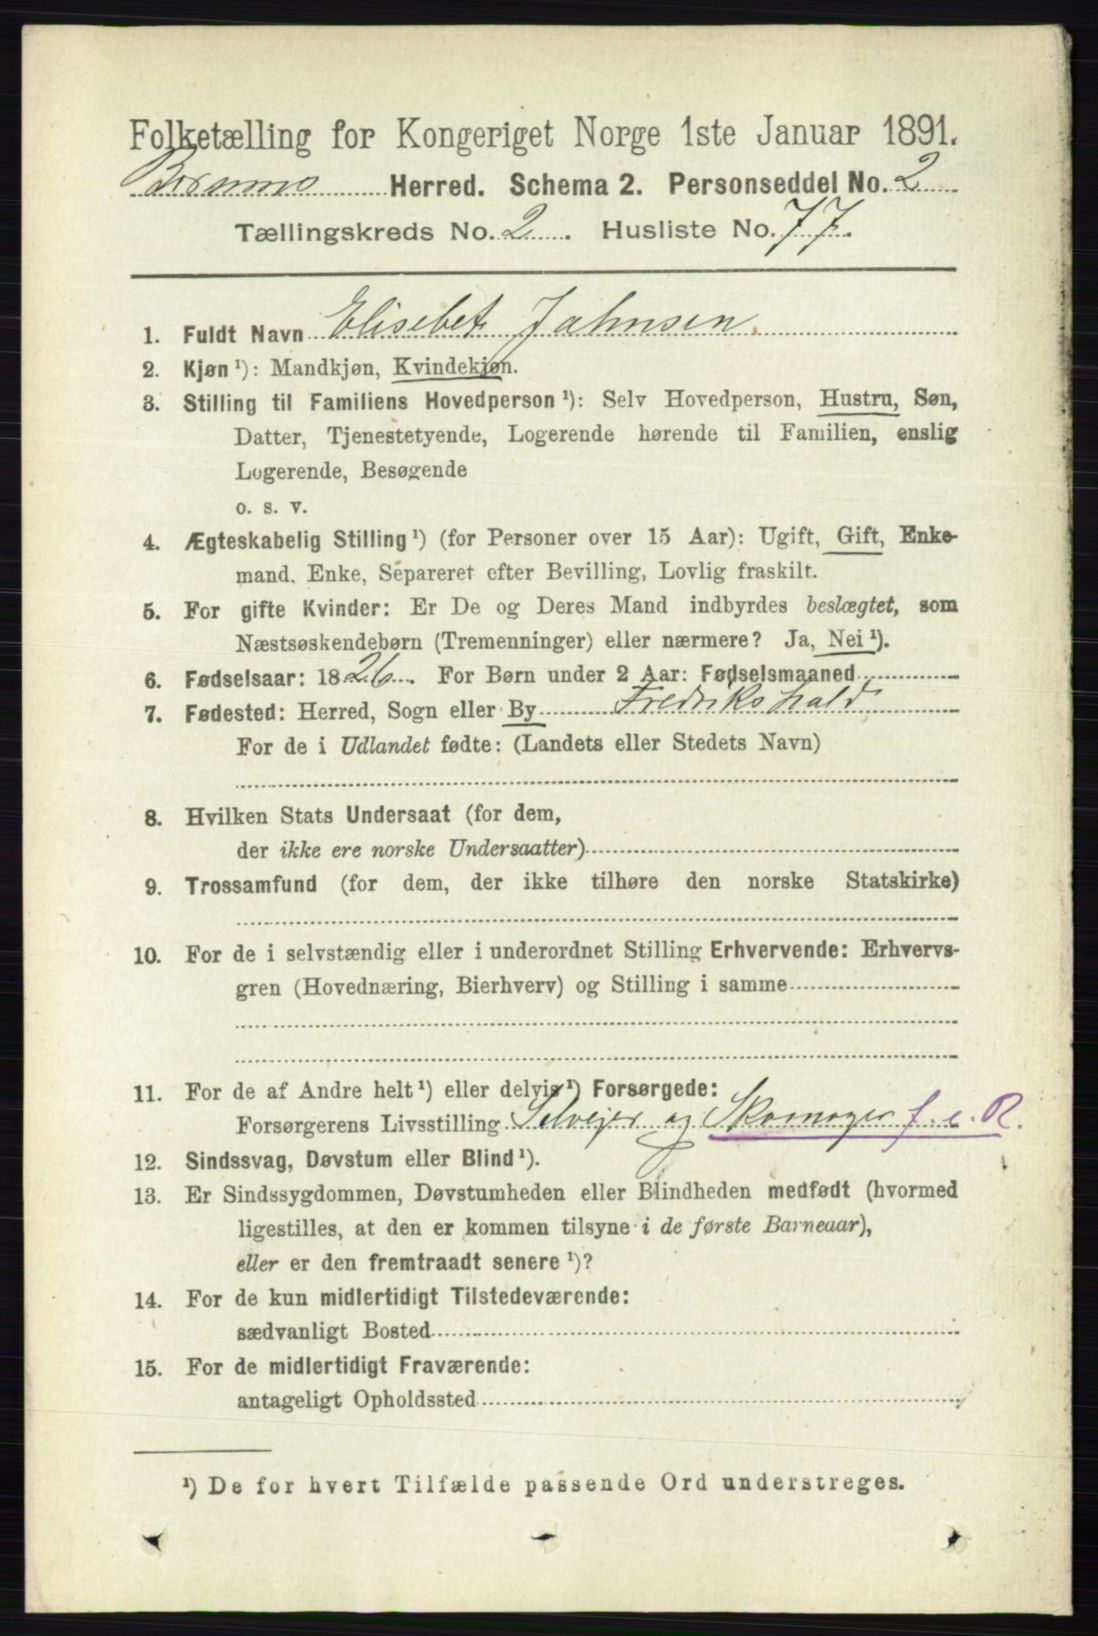 Folketælling for Kongeriget Norge 1ste Januar 1891.
Herred. Schema 2. Personseddel No. 2
Tællingskreds No. 2. Husliste No. 77.
1. Fuldt Navn Elisebet Jahnsen.
2. Kjøn ¹): Mandkjøn, Kvindekjøn.
3. Stilling til Familiens Hovedperson ¹): Selv Hovedperson, Hustru, Søn,
Datter, Tjenestetyende, Logerende hørende til Familien, enslig
Logerende, Besøgende
o. s. v.
4. Ægteskabelig Stilling ¹) (for Personer over 15 Aar): Ugift, Gift, Enke-
mand, Enke, Separeret efter Bevilling, Lovlig fraskilt.
5. For gifte Kvinder: Er De og Deres Mand indbyrdes beslægtet, som
Næstsøskendebørn (Tremenninger) eller nærmere? Ja, Nei ¹).
6. Fødselsaar: 1826. For Børn under 2 Aar: Fødselsmaaned
7. Fødested: Herred, Sogn eller By Fredrikshald
For de i Udlandet fødte: (Landets eller Stedets Navn)
8. Hvilken Stats Undersaat (for dem,
der ikke ere norske Undersaatter)
9. Trossamfund (for dem, der ikke tilhøre den norske Statskirke)
10. For de i selvstændig eller i underordnet Stilling Erhvervende: Erhvervs-
gren (Hovednæring, Bierhverv) og Stilling i samme
11. For de af Andre helt ¹) eller delvis ¹) Forsørgede:
Forsørgerens Livsstilling Selvejer og Skomager f. e. R.
12. Sindssvag, Døvstum eller Blind ¹).
13. Er Sindssygdommen, Døvstumheden eller Blindheden medfødt (hvormed
ligestilles, at den er kommen tilsyne i de første Barneaar),
eller er den fremtraadt senere ¹)?
14. For de kun midlertidigt Tilstedeværende:
sædvanligt Bosted
15. For de midlertidigt Fraværende:
antageligt Opholdssted
¹) De for hvert Tilfælde passende Ord understreges.